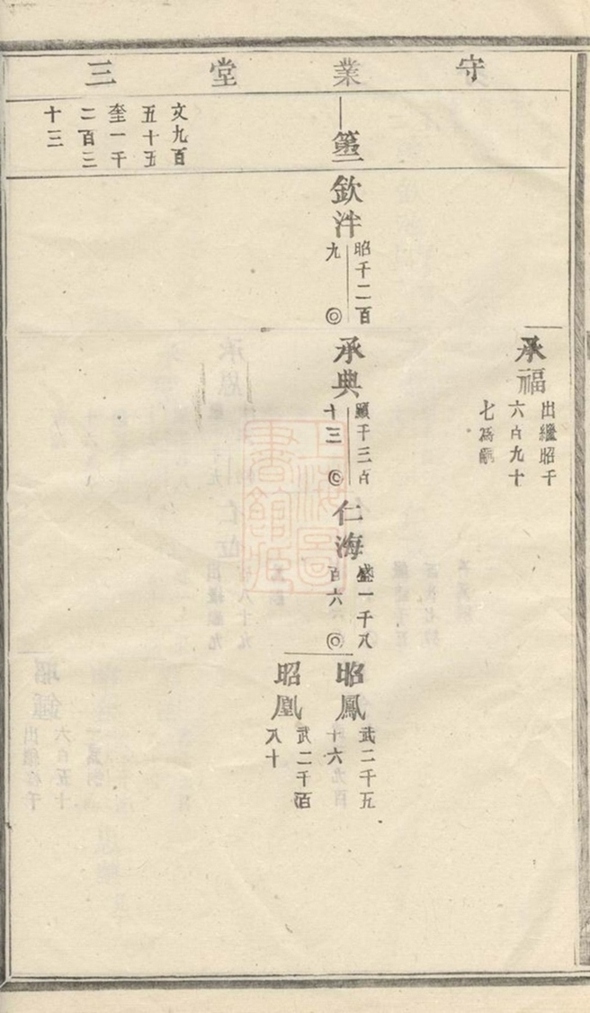 守業堂三
承福
出繼昭千
六百九十
七爲嗣
第一
欽泮
昭千二百
九
◎
承典
顯千三百
十三
◎
仁海
盛一千八
百六
◎
昭鳳
武二千五
十六
昭凰
武二千百
八十
文九百
五十五
奎一千
二百三
十三
上海圖
書館藏